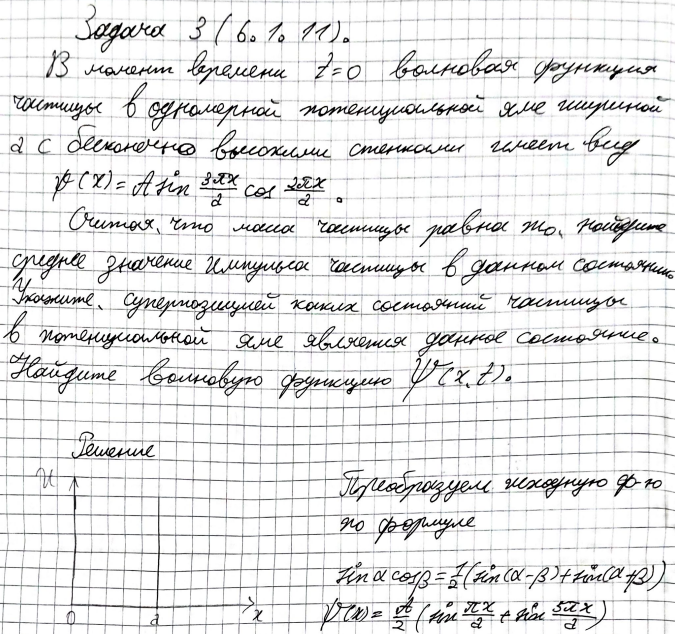 Задача 3 (6.1.11).
В момент времени t=0 волновая функция
частицы в одномерной потенциальной яме шириной
a с бесконечно высокими стенками имеет вид
ψ(x)=A sin 3πx/a cos 2πx/a.
Считая, что масса частицы равна m₀, найдите
среднее значение импульса частицы в данном состоянии.
Укажите, суперпозицией каких состояний частицы
в потенциальной яме является данное состояние.
Найдите волновую функцию Ψ(x,t).
Решение
U
0 a x
Преобразуем исходную ф-ю
по формуле
sinα cosβ=1/2(sin(α-β)+sin(α+β))
ψ(x)=A/2(sin πx/a + sin 5πx/a)